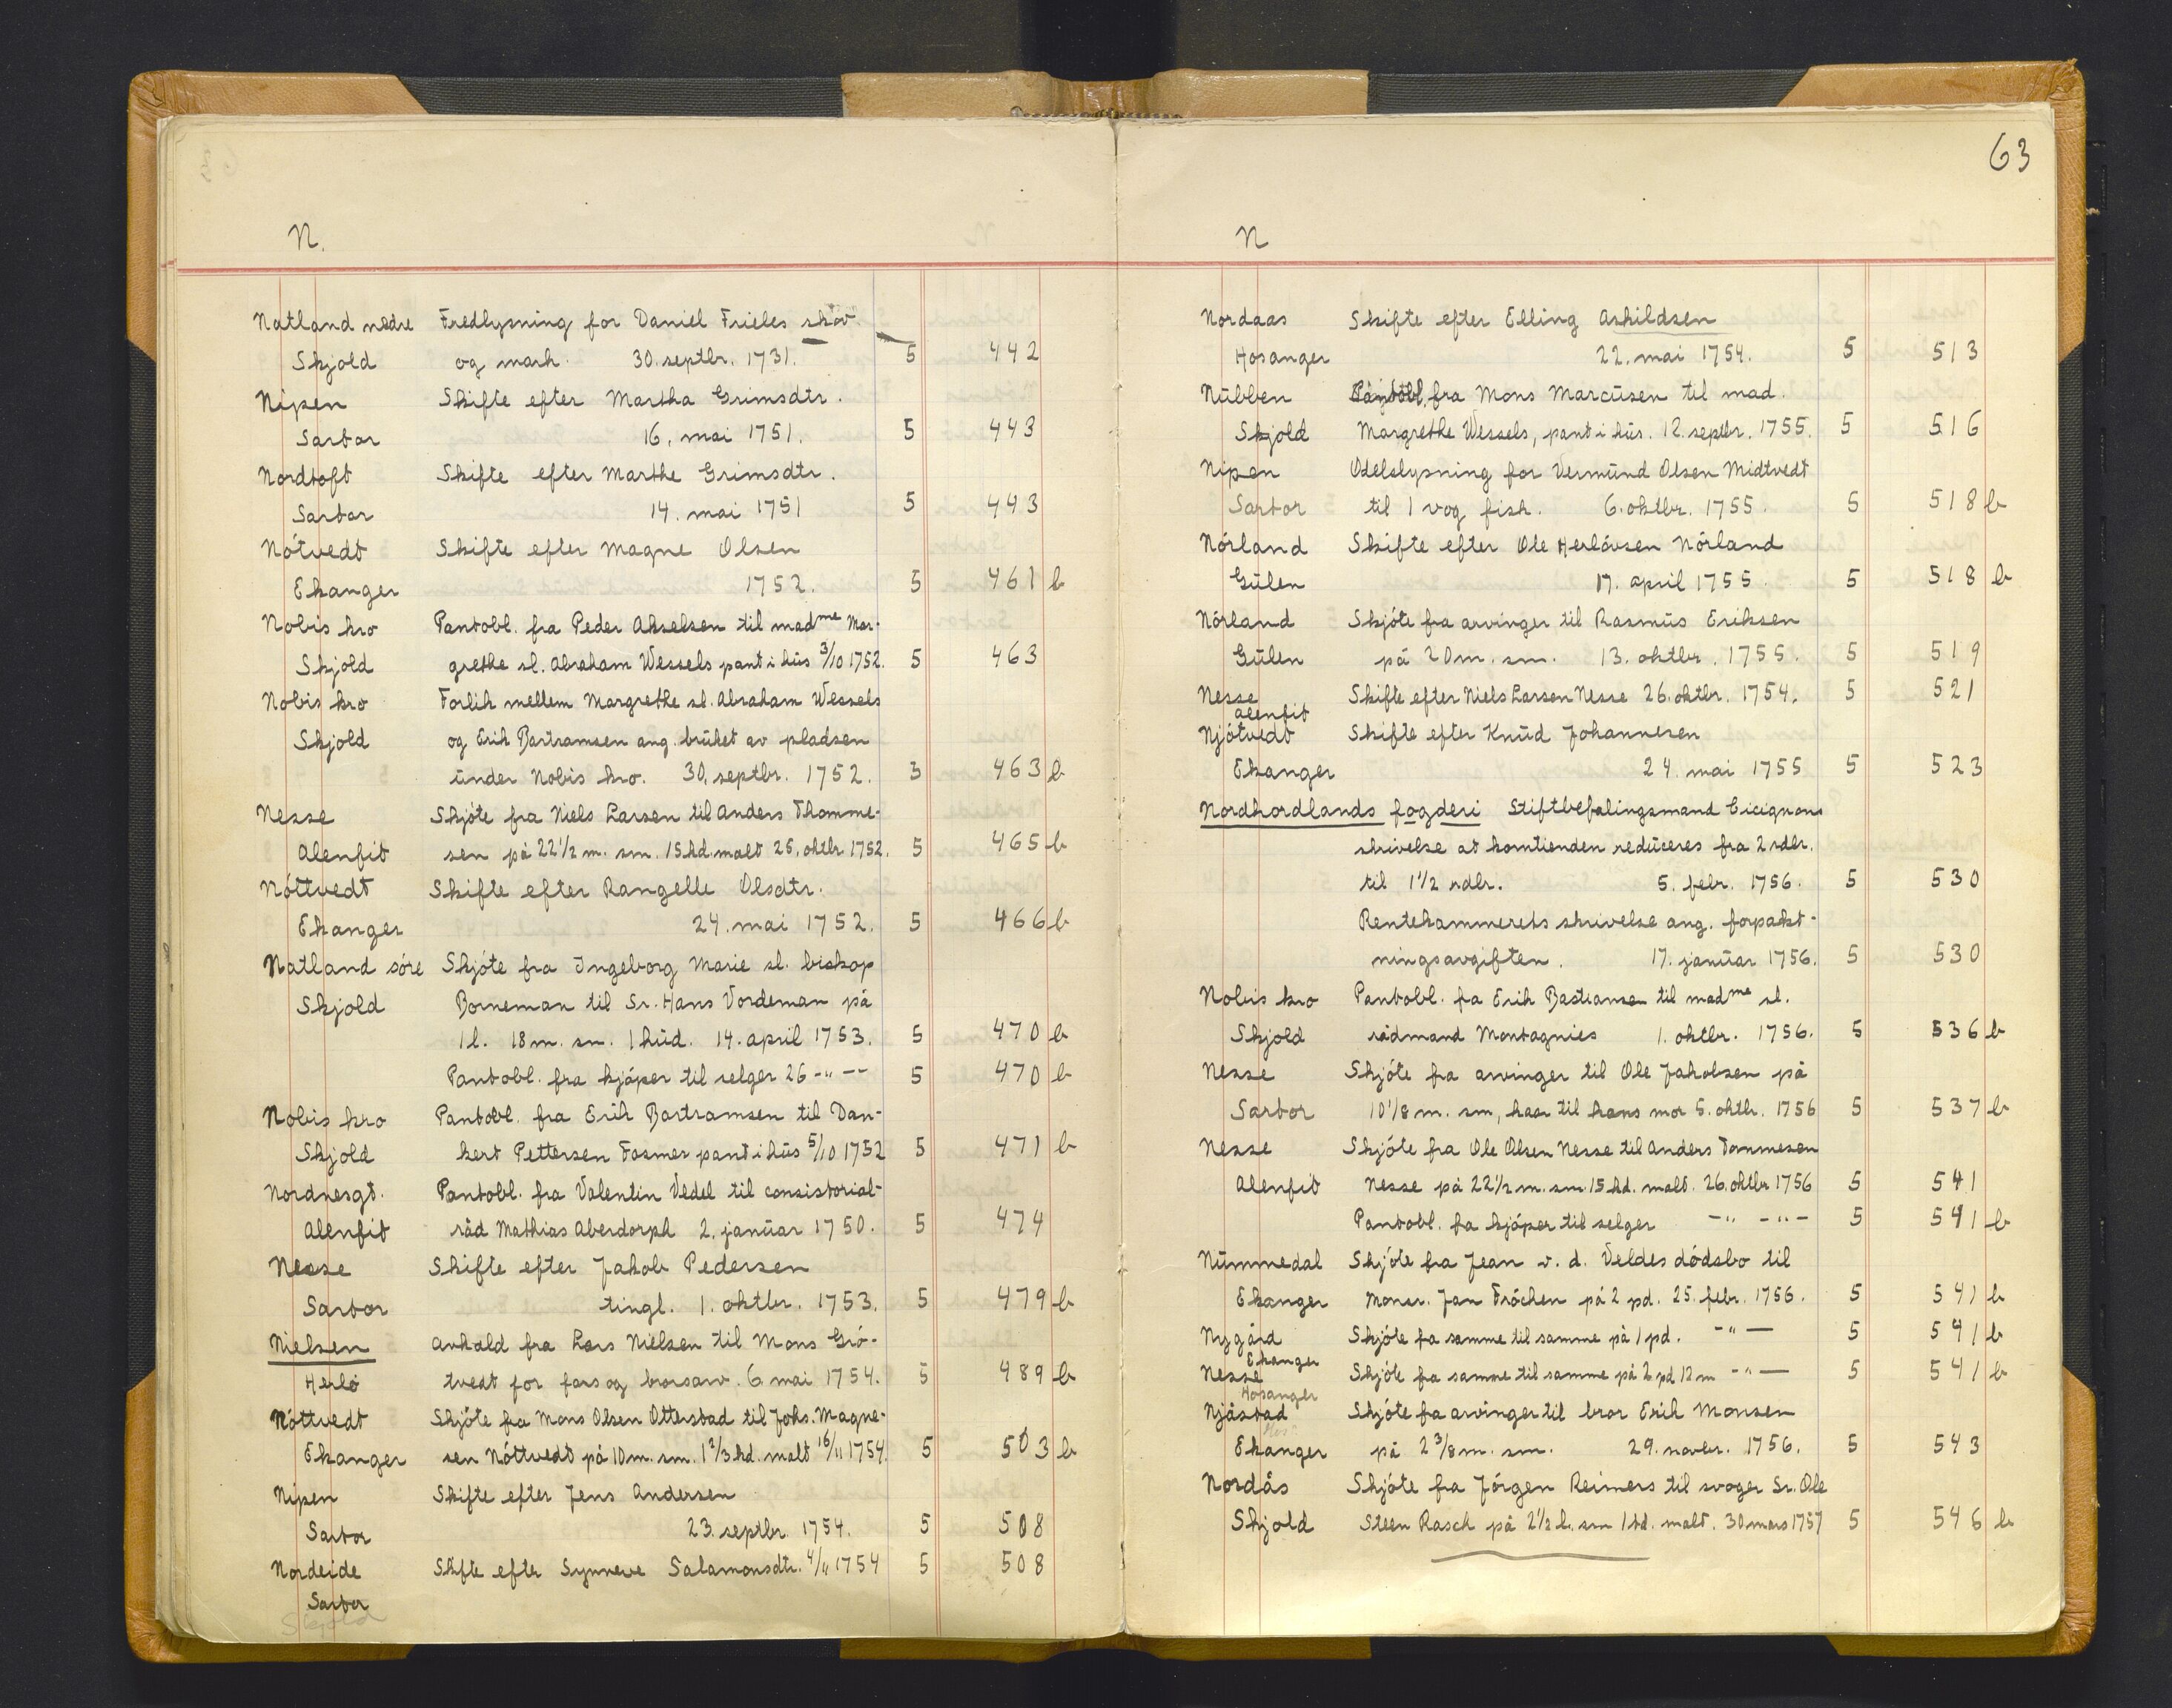 N.
Natland nedre Fredlysning for Daniel Frieles skov
Skjold og mark. 30. septbr. 1731. 5 442
Nipen Skifte efter Martha Grimsdtr.
Sartor 16. mai 1751. 5 443
Nordtoft Skifte efter Marthe Grimsdtr.
Sartor 14. mai 1751 5 443
Nótvedt Skifte efter Magne Olsen
Ekanger 1752. 5 461 b
Nobis kro Pantobl. fra Peder Akselsen til madme Mar-
Skjold grethe sl. Abraham Wessels pant i hús 3/10 1752. 5 463
Nobis kro Forlik mellem Margrethe sl. Abraham Wessels
Skjold og Erik Bartramsen ang. brúket av pladsen
únder Nobis kro. 30. septbr. 1752. 3 463 b
Nesse Skjóte fra Niels Larsen til Anders Thomme-
Alenfit sen på 22 1/2 m. sm. 15 kd. malt 26. oktbr 1752. 5 465 b
Nóttvedt Skifte efter Rangelle Olsdtr.
Ekanger 24. mai 1752. 5 466 b
Natland sóre Skjóte fra Ingeborg Marie sl. biskop
Skjold Borneman til Sr. Hans Vordeman på
1 l. 18 m. sm. 1 húd. 14. april 1753. 5 470 b
Pantobl. fra kjóper til selger 26 -"- - 5 470 b
Nobis kro Pantobl. fra Erik Bartramsen til Dan-
Skjold kert Pettersen Fasmer pant i hús 5/10 1752 5 471 b
Nordnesgt. Pantobl. fra Valentin Vedel til consistorial-
Alenfit råd Mathias Aberdorph 2. janúar 1750. 5 474
Nesse Skifte efter Jakob Pedersen
Sartor tingl. 1. oktbr. 1753. 5 479 b
Nielsen Avkald fra Lars Nielsen til Mons Gró-
Herlø tvedt for fars og brorsarv. 6 mai 1754. 5 489 b
Nóttvedt Skjóte fra Mons Olsen Otterstad til Johs. Magne-
Ekanger sen Nóttvedt på 10 m. sm. 1 2/3 kd. malt 16/11 1754. 5 503 b
Nipen Skifte efter Jens Andersen
Sartor 23. septbr. 1754. 5 508
Nordeide Skifte efter Synneve Salamonsdtr. 4/11 1754 5 508
Sartor
Skjold
63
N
Nordaas Skifte efter Elling Askildsen
Hosanger 22. mai 1754. 5 513
Núbben Pantobl. fra Mons Marcúsen til mad.
Skjold Margrethe Wessels, pant i hús. 12. septbr. 1755. 5 516
Nipen Odelslysning for Vermúnd Olsen Midtvedt
Sartor til 1 vog fisk. 6. oktbr. 1755. 5 518 b
Nórland Skifte efter Ole Herlóvsen Nórland
Gúlen 17. april 1755. 5 518 b
Nórland Skjóte fra arvinger til Rasmús Eriksen
Gúlen på 20 m. sm. 13. oktbr. 1755. 5 519
Nesse Skifte efter Niels Larsen Nesse 26. oktbr. 1754. 5 521
Alenfit
Njótvedt Skifte efter Knúd Johannesen
Ekanger 24. mai 1755 5 523
Nordhordlands fogderi Stiftbefalingsmand Cicignons
skrivelse at korntienden redúceres fra 2 rdlr.
til 1 1/2 rdlr. 5. febr. 1756. 5 530
Rentekammerets skrivelse ang. forpakt-
ningsavgiften. 17. janúar 1756. 5 530
Nobis kro Pantobl. fra Erik Bastiansen til madme sl.
Skjold rådmand Montagnies 1. oktbr. 1756. 5 536 b
Nesse Skjóte fra arvinger til Ole Jakobsen på
Sartor 10 1/8 m. sm, kaar til hans mor 5. oktbr. 1756 5 537 b
Nesse Skjóte fra Ole Olsen Nesse til Anders Tommesen
Alenfit Nesse på 22 1/2 m. sm. 15 kd. malt. 26. oktbr 1756 5 541
Pantobl. fra kjóper til selger -"- -"- 5 541 b
Númmedal Skjóte fra Jean v. d. Veldes dódsbo til
Ekanger Monsr. Jan Fróchen på 2 pd. 25. febr. 1756. 5 541 b
Nygård Skjóte fra samme til samme på 1 pd. -"- 5 541 b
Ekanger
Nesse Skjóte fra samme til samme på 2 pd 12 m -"- 5 541 b
Hosanger
Njåstad Skjóte fra arvinger til bror Erik Monsen
Ekanger på 2 3/8 m. sm. 29. novbr. 1756. 5 543
Nordås Skjóte fra Jórgen Reimers til svoger Sr. Ole
Skjold Steen Rasch på 2 1/2 l. sm 1 hd. malt. 30 mars 1757 5 546 b